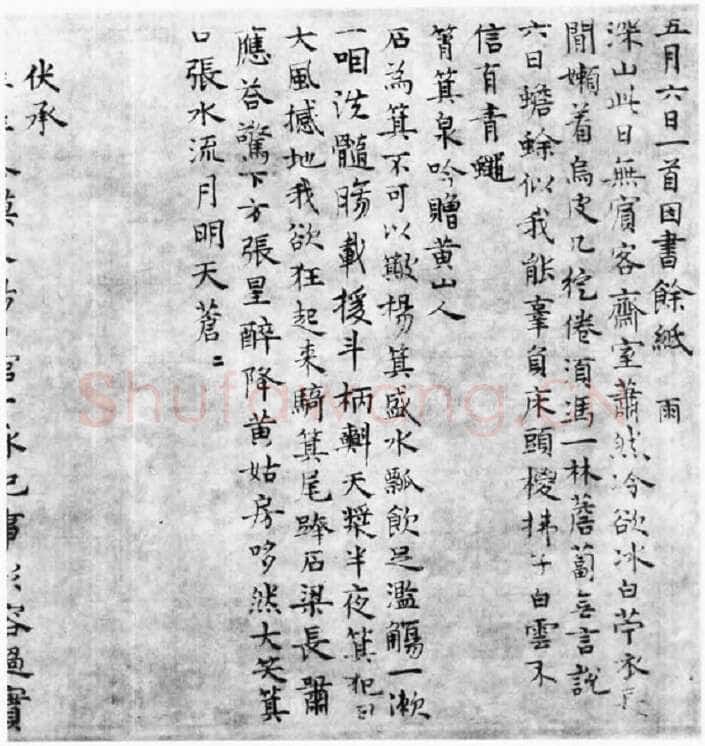 五月六日一首因書餘紙 雨
深山此日無賓客齋室蕭然冷欲冰白苧衣長
閒嬾着烏皮几倦須馮一林薝蔔無言說
六日蟾蜍似我能辜負床頭椶拂子白雲不
信有青蠅
筲箕泉吟贈黃山人
石為箕不可以簸揚箕盛水瓢飲足濫觴一漱
一咽洗髓腸載援斗柄㪺天漿半夜箕犯日
大風撼地我欲狂起來騎箕尾石梁長嘯
應答驚下方張星醉降黃姑房哆然大笑箕
口張水流月明天蒼〻
伏承
事形容過實
Shufawang.CN